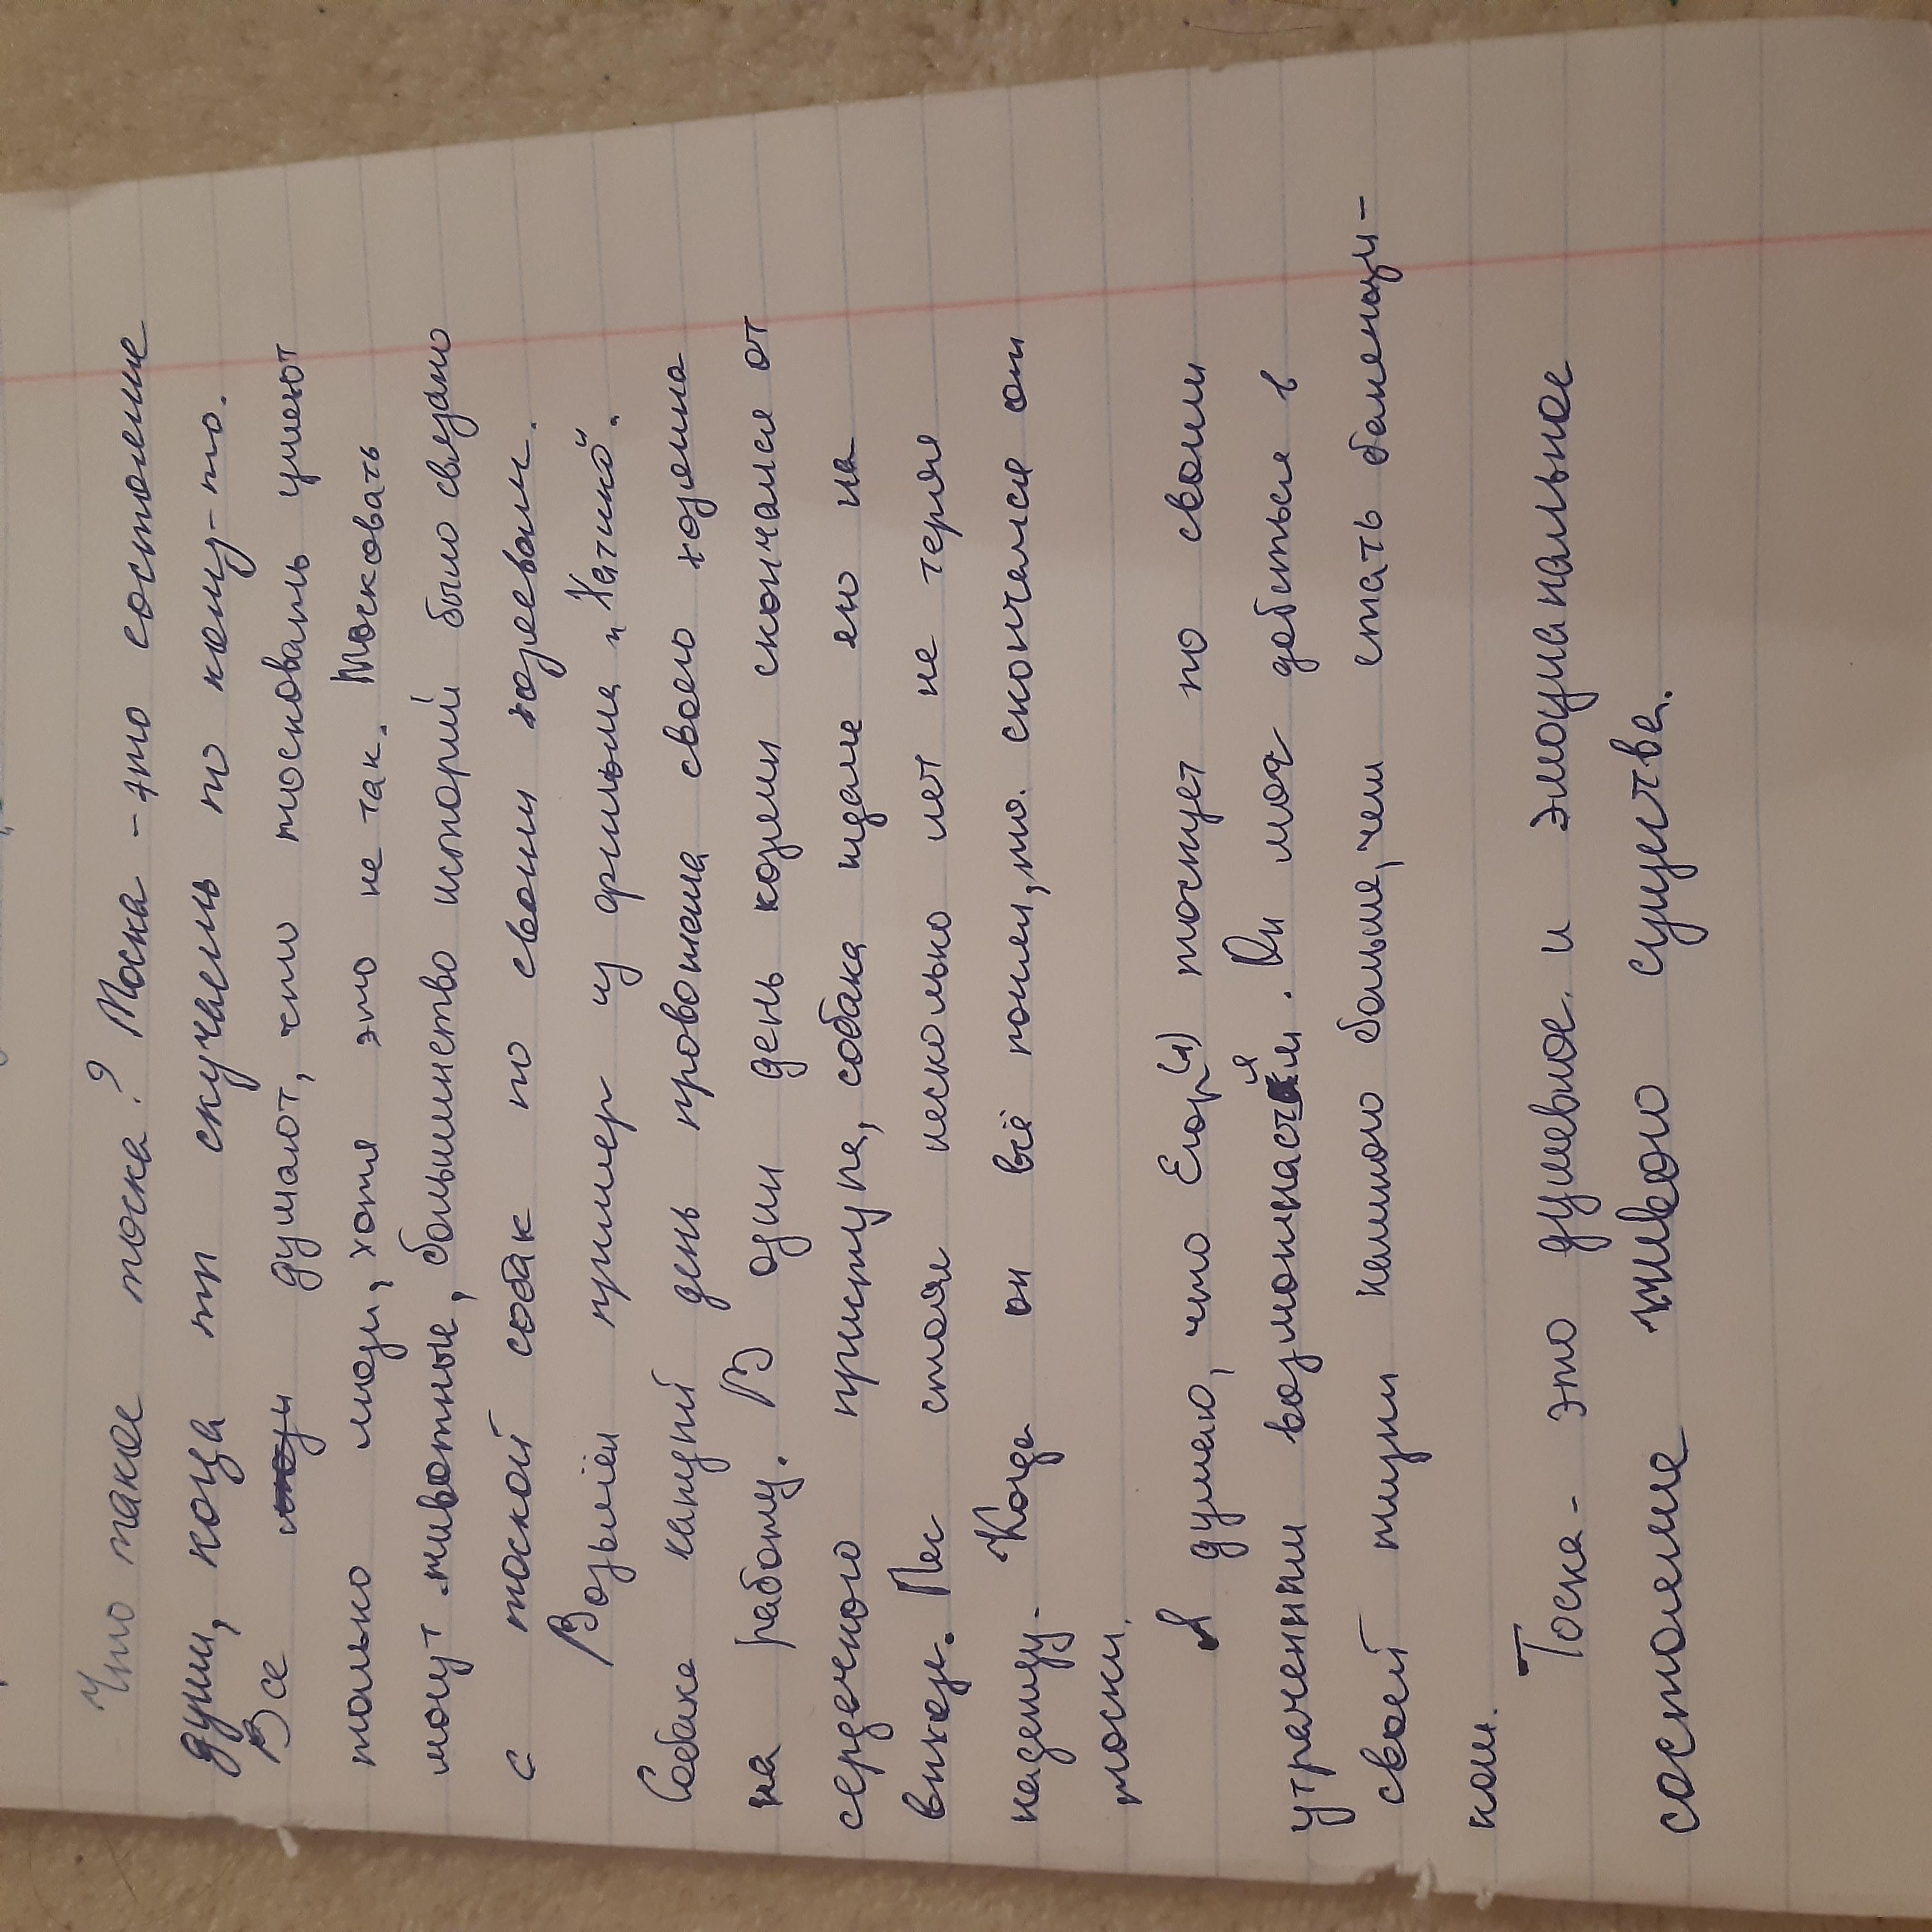 Что такое тоска? Тоска - это состояние
души, когда ты скучаешь по кому-то.
Все думают, что тосковать умеют
только люди, хотя это не так. Тосковать
могут животные, большинство историй было связано
с тоской собак по своим хозяевам.
Возьмём пример из фильма "Хатико".
Собака каждый день провожала своего хозяина
на работу. В один день хозяин скончался от
сердечного приступа, собака ждала его на
вокзале. Пес стоял несколько лет не теряя
надежду. Когда он всё понял, то скончался от
тоски.
Я думаю, что Егор(ч) тоскует по своим
утраченным возможностям. Он мог добиться в
своей жизни намного больше, чем стать обменщи-
ком.
Тоска - это душевное и эмоцианальное
состояние живого существа.